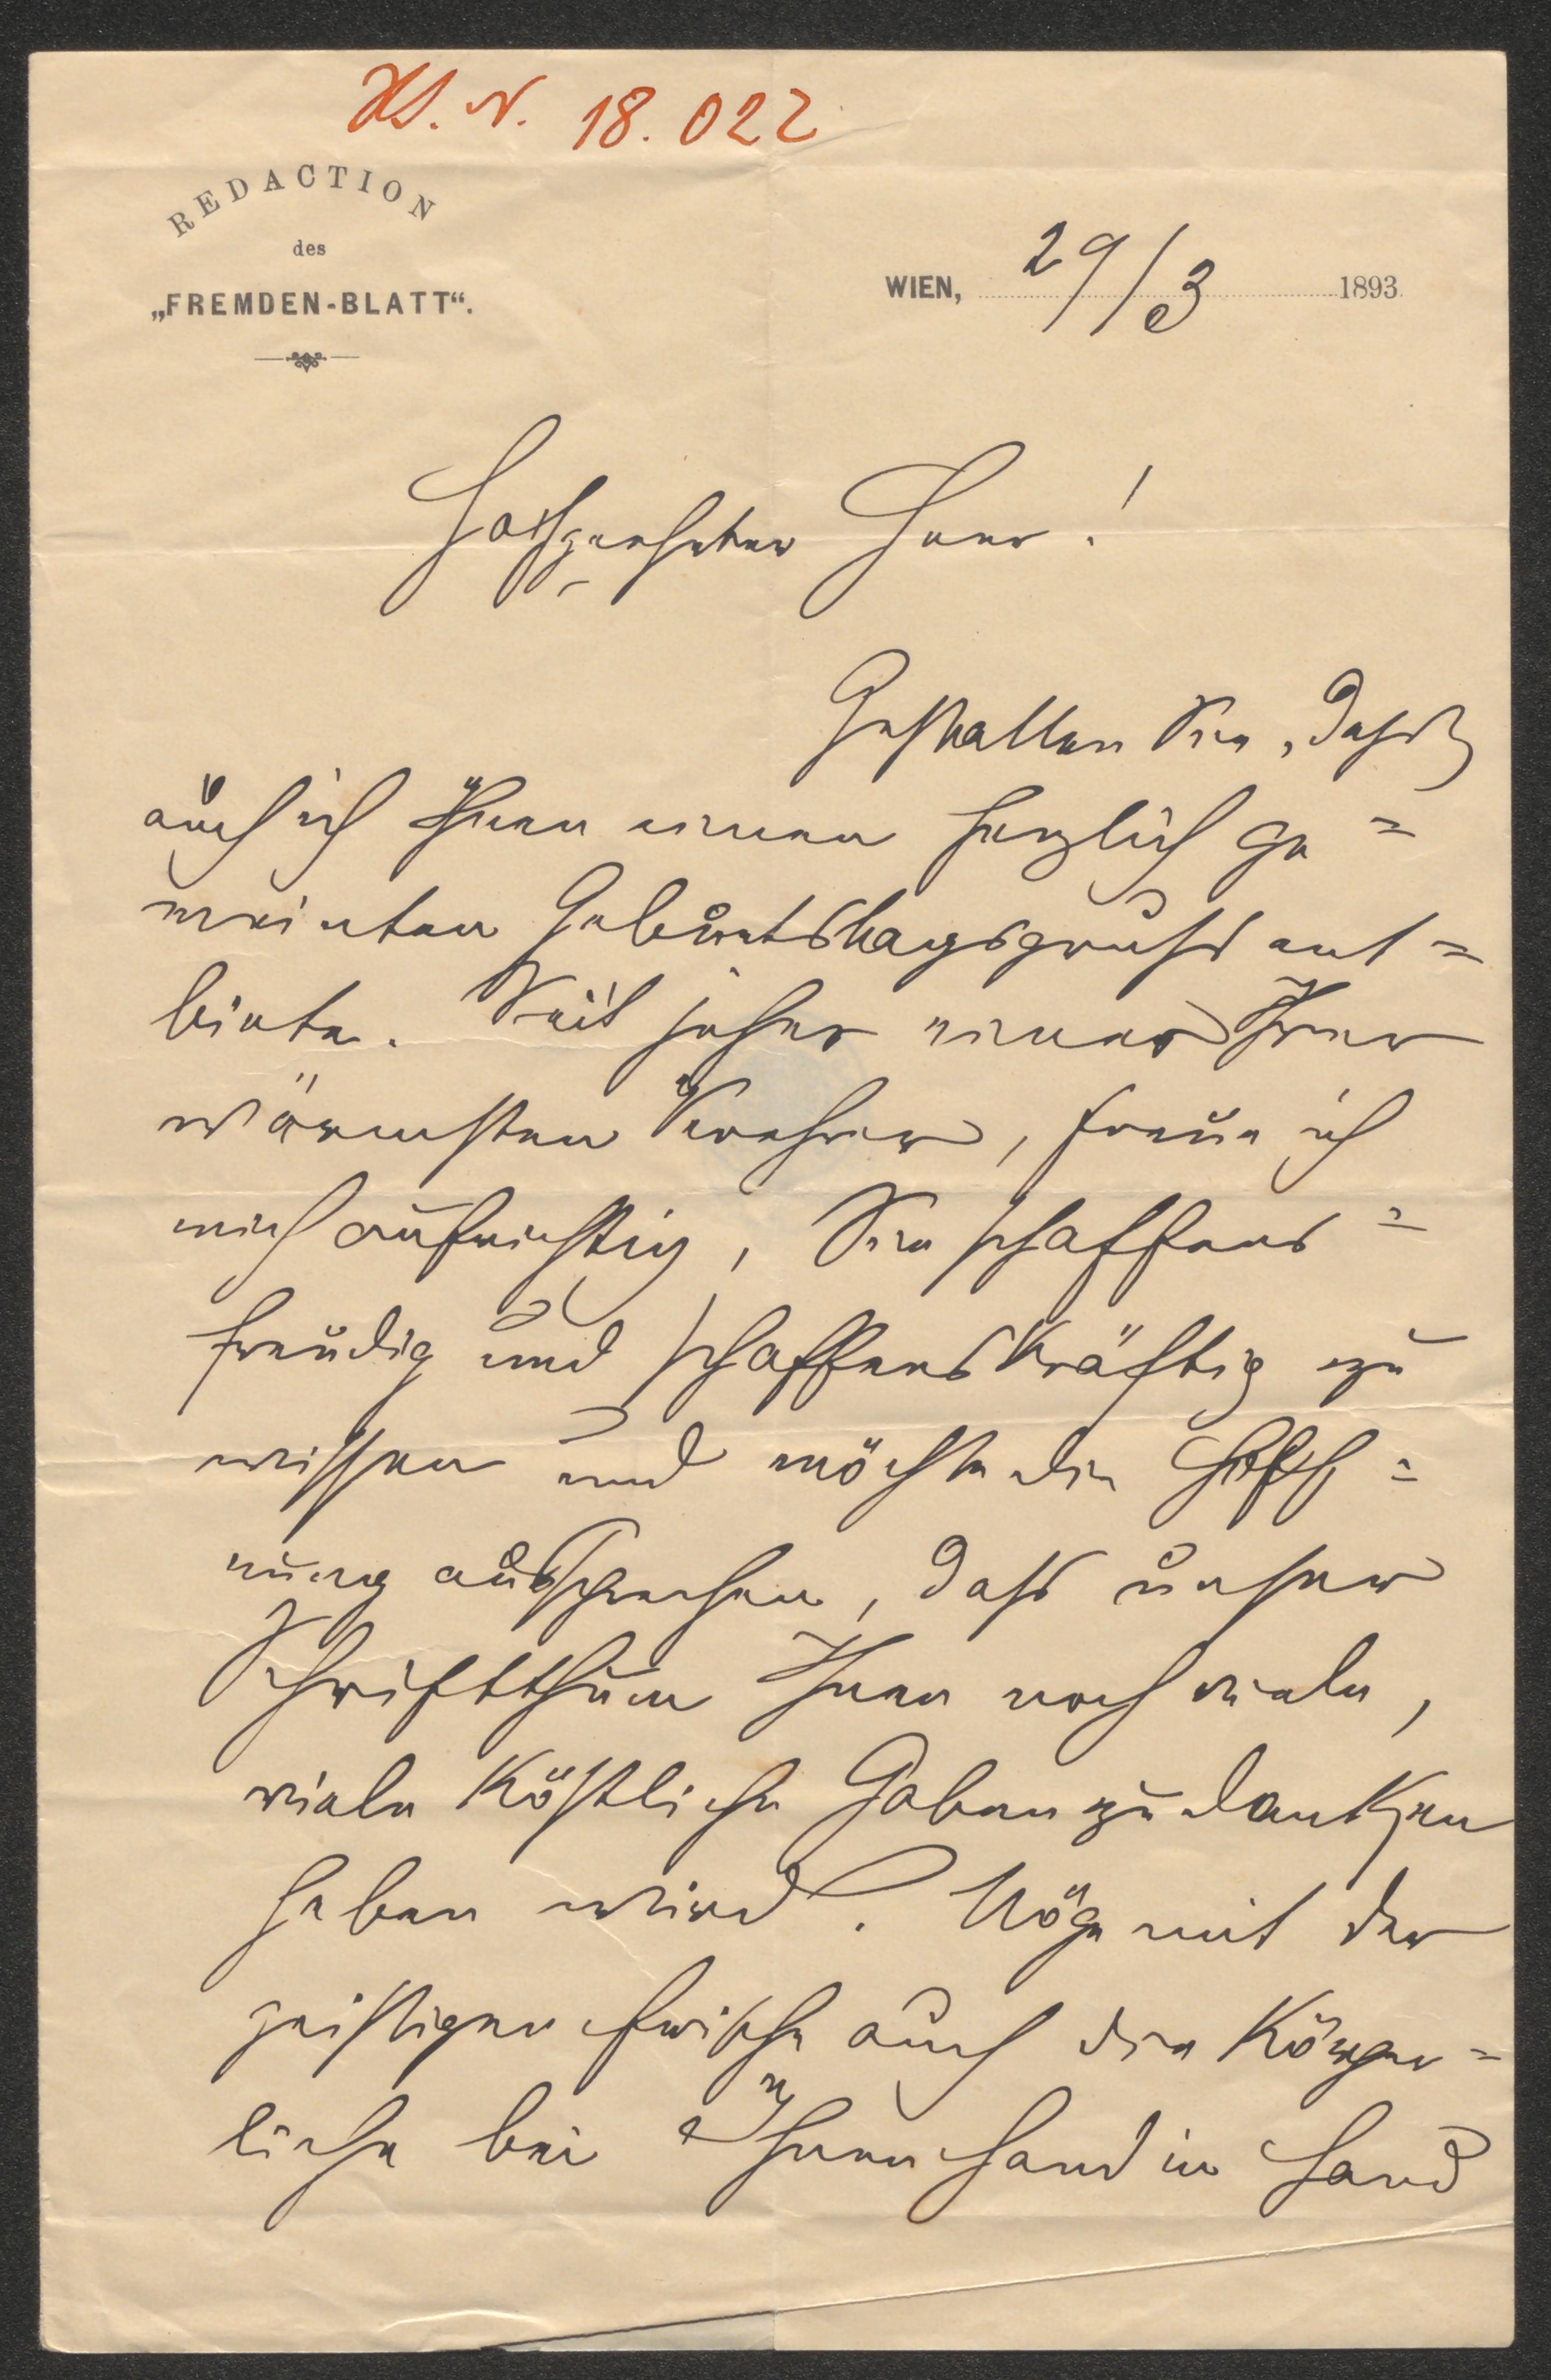 Hs. N. 18.022
REDACTION
des
„FREMDEN-BLATT“.
WIEN, 29/3 1893.
Hochgeehrter Herr!
Gestatten Sie, dass
auch ich Ihnen einen herzlich ge=
meinten Geburtstagsgruss ent=
biete. Seit jeher einer Ihrer
wärmsten Verehrer, freue ich
mich aufrichtig, Sie schaffens=
freudig und schaffenskräftig zu
wissen und möchte die Hoff=
nung aussprechen, dass unser
Schriftthum Ihnen noch viele,
viele köstliche Gaben zu danken
haben wird. Möge mit der
geistigen Frische auch die körper=
liche bei Ihnen Hand in Hand